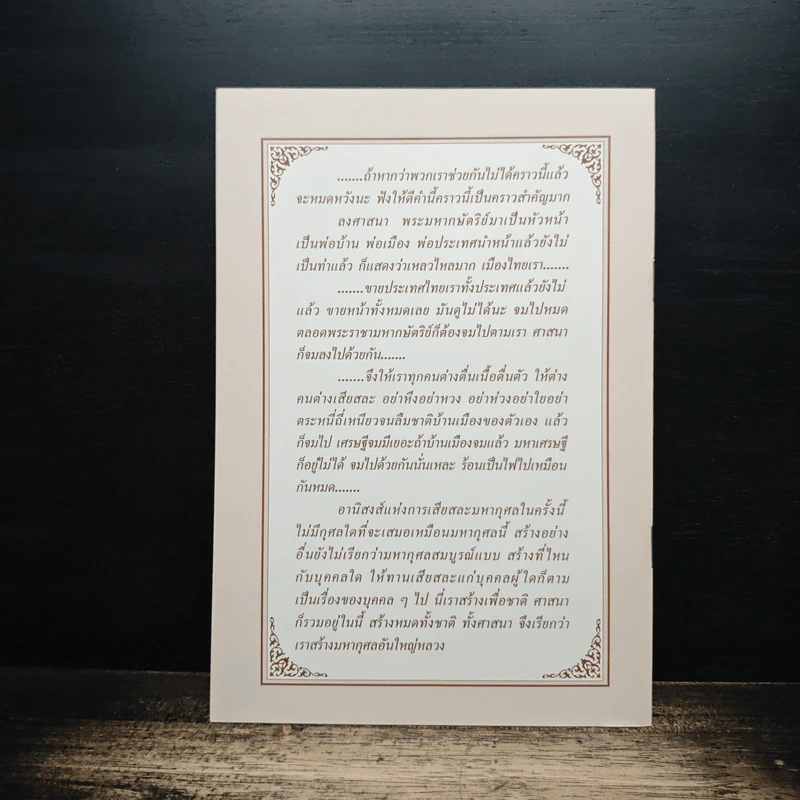 .......ถ้าหากว่าพวกเราช่วยกันไม่ได้คราวนี้แล้ว
จะหมดหวังนะ ฟังให้ดีคำนี้คราวนี้เป็นคราวสำคัญมาก
ลงศาสนา พระมหากษัตริย์มาเป็นหัวหน้า
เป็นพ่อบ้าน พ่อเมือง พ่อประเทศนำหน้าแล้วยังไม่
เป็นท่าแล้ว ก็แสดงว่าเหลวไหลมาก เมืองไทยเรา.......
.......ขายประเทศไทยเราทั้งประเทศแล้วยังไม่
แล้ว ขายหน้าทั้งหมดเลย มันดูไม่ได้นะ จมไปหมด
ตลอดพระราชามหากษัตริย์ก็ต้องจมไปตามเรา ศาสนา
ก็จมลงไปด้วยกัน.......
.......จึงให้เราทุกคนต่างตื่นเนื้อตื่นตัว ให้ต่าง
คนต่างเสียสละ อย่าหึงอย่าหวง อย่าห่วงอย่าใยอย่า
ตระหนี่ถี่เหนียวจนลืมชาติบ้านเมืองของตัวเอง แล้ว
ก็จมไป เศรษฐีจมมีเยอะถ้าบ้านเมืองจมแล้ว มหาเศรษฐี
ก็อยู่ไม่ได้ จมไปด้วยกันนั่นเหละ ร้อนเป็นไฟไปเหมือน
กันหมด.......
อานิสงส์แห่งการเสียสละมหากุศลในครั้งนี้
ไม่มีกุศลใดที่จะเสมอเหมือนมหากุศลนี้ สร้างอย่าง
อื่นยังไม่เรียกว่ามหากุศลสมบูรณ์แบบ สร้างที่ไหน
กับบุคคลใด ให้ทานเสียสละแก่บุคคลผู้ใดก็ตาม
เป็นเรื่องของบุคคล ๆ ไป นี่เราสร้างเพื่อชาติ ศาสนา
ก็รวมอยู่ในนี้ สร้างหมดทั้งชาติ ทั้งศาสนา จึงเรียกว่า
เราสร้างมหากุศลอันใหญ่หลวง